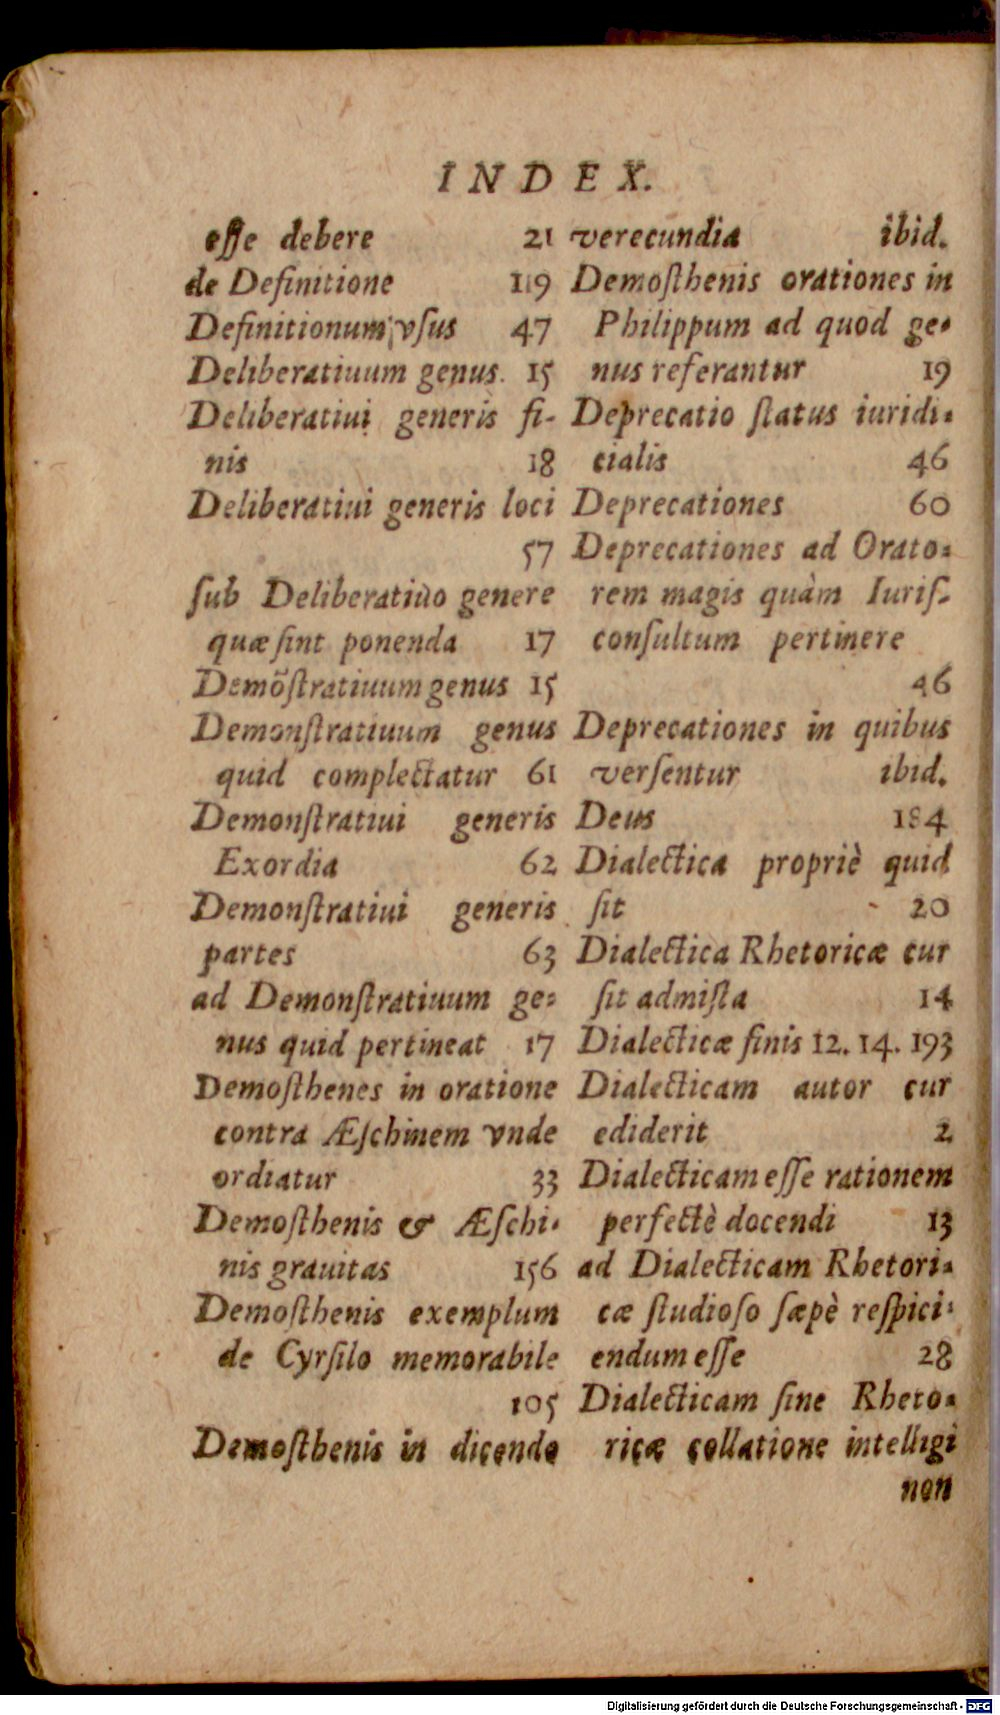 INDEX.
eſſe debere 21
de Definitione 119
Definitionum vſus 47
Deliberatiuum genus. 15
Deliberatiui generis fi-
nis 18
Deliberatiui generis loci
57
ſub Deliberatiuo genere
quæ ſint ponenda 17
Demõſtratiuum genus 15
Demonſtratiuum genus
quid complectatur 61
Demonſtratiui generis
Exordia 62
Demonſtratiui generis
partes 63
ad Demonſtratiuum ge-
nus quid pertineat 17
Demoſthenes in oratione
contra Æſchinem vnde
ordiatur 33
Demoſthenis & Æſchi-
nis grauitas 156
Demoſthenis exemplum
de Cyrſilo memorabile
105
Demoſthenis in dicendo
verecundia ibid.
Demoſthenis orationes in
Philippum ad quod ge-
nus referantur 19
Deprecatio ſtatus iuridi-
cialis 46
Deprecationes 60
Deprecationes ad Orato-
rem magis quàm Iuriſ-
conſultum pertinere
46
Deprecationes in quibus
verſentur ibid.
Deus 184
Dialectica propriè quid
ſit 20
Dialectica Rhetoricæ cur
ſit admiſta 14
Dialecticæ finis 12. 14. 193
Dialecticam autor cur
ediderit 2
Dialecticam eſſe rationem
perfectè docendi 13
ad Dialecticam Rhetori-
cæ ſtudioſo ſæpè reſpici-
endum eſſe 28
Dialecticam ſine Rheto-
ricæ collatione intelligi
non
Digitalisierung gefördert durch die Deutsche Forschungsgemeinschaft - DFG